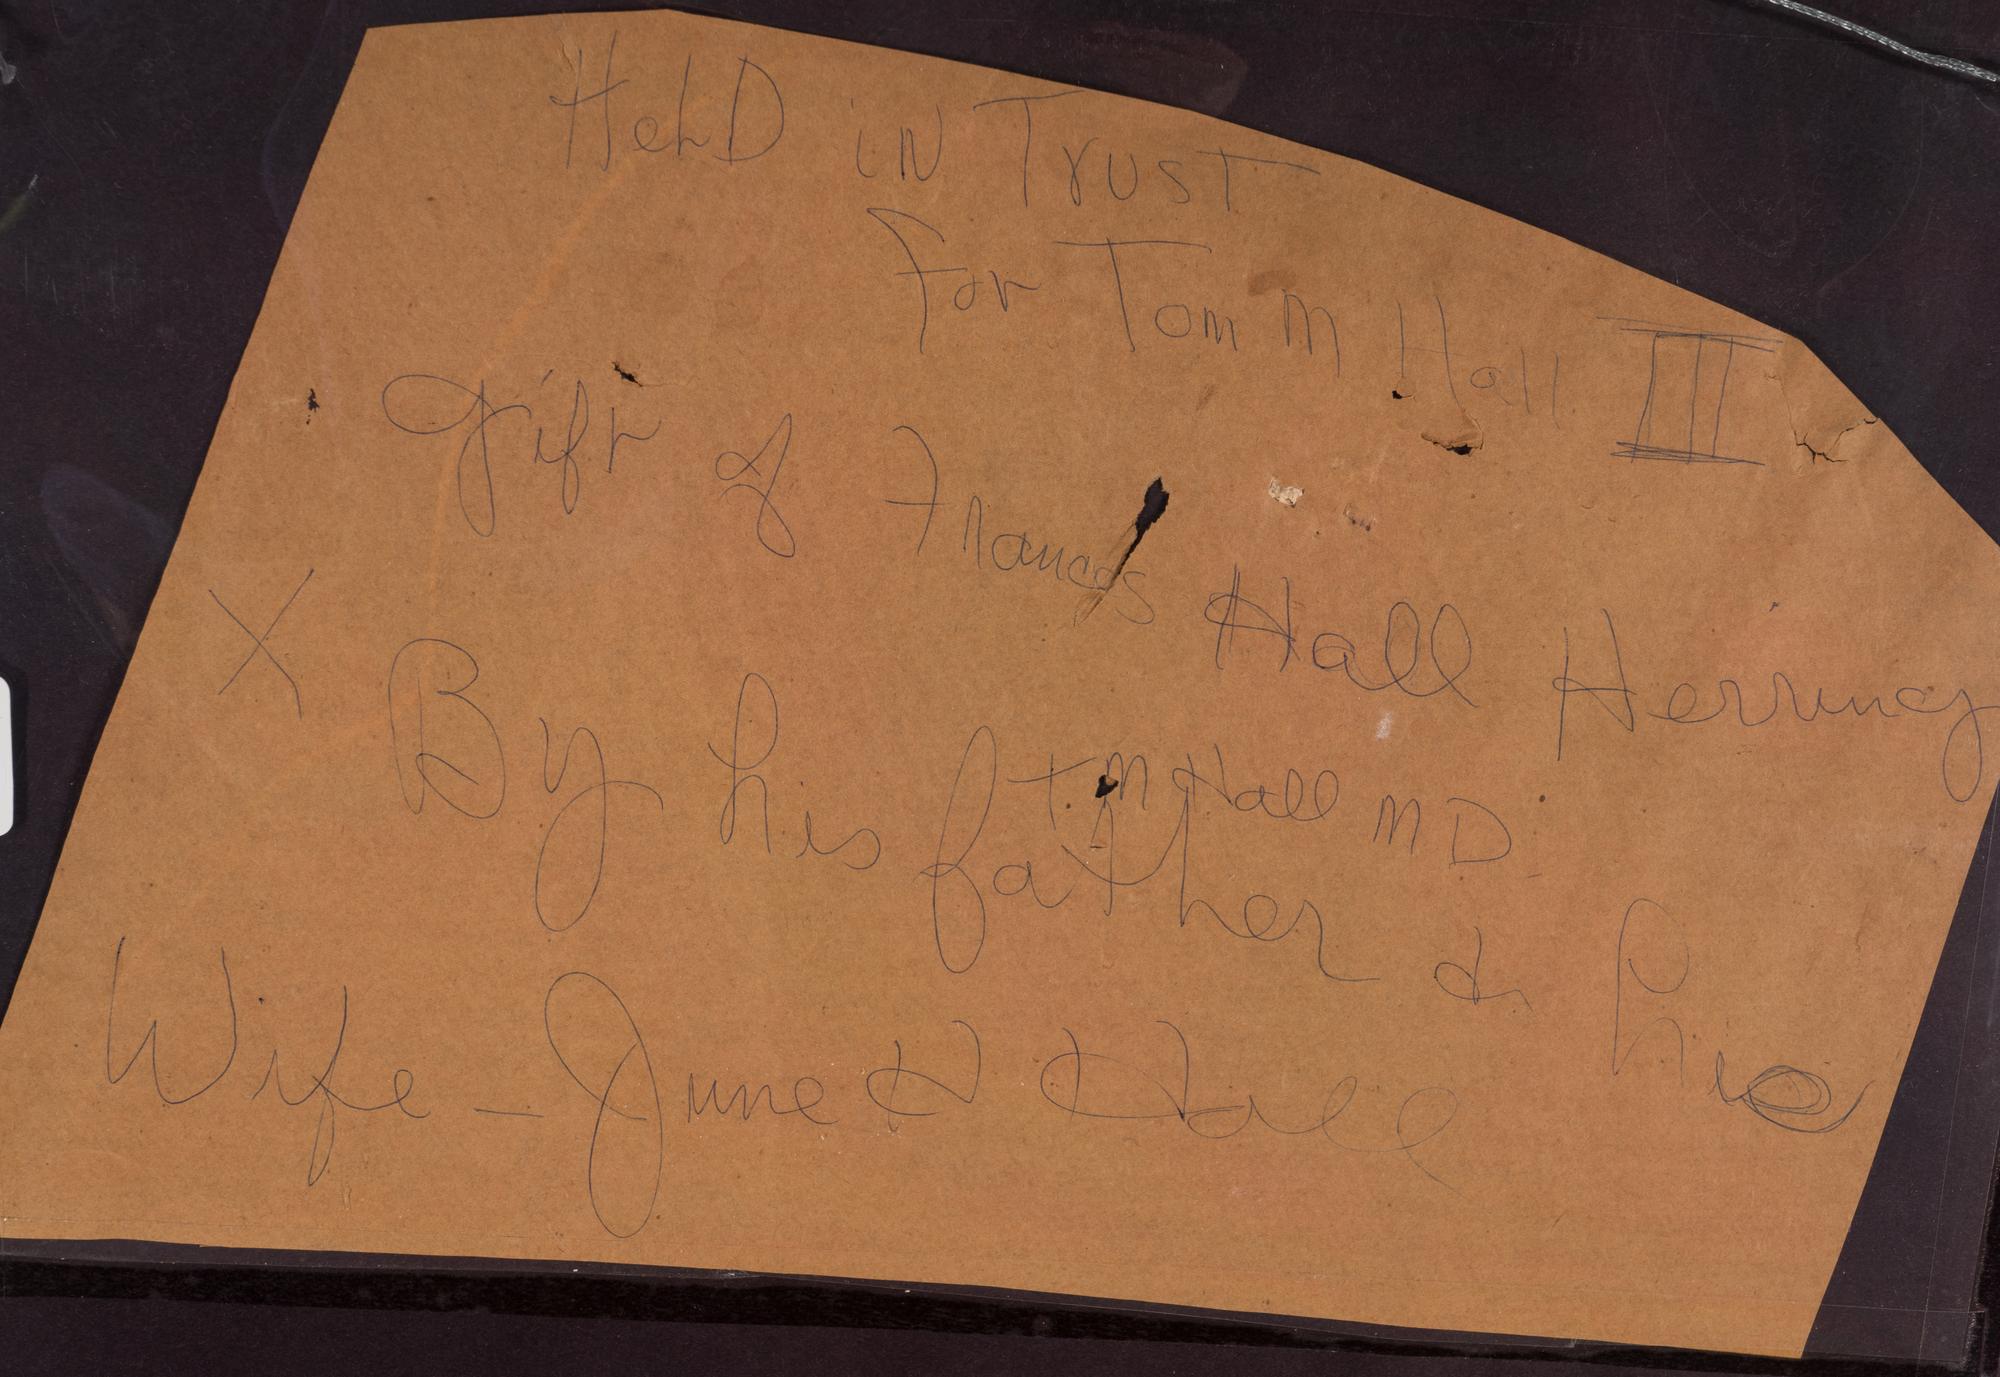 HeLD iN TrusT
For Tom M Hall III
Gift of Frances Hall Herring
X By his father & his
T. M Hall MD.
Wife - June H Hall